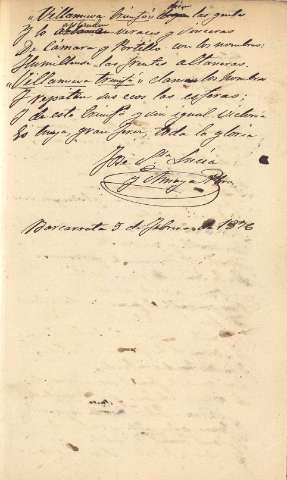 "Villanueva triunfó" las gentes
Y lo veraces y sinceras
De Cámara y Portillo con los nombres
Humillando las frentes altaneras.
"Villanueva triunfó" claman los hombres
Y repiten sus ecos las esferas;
Y de este triunfo y sin igual victoria
Es tuya, gran Señor, toda la gloria
José Mª Lucía
y Amaya
Barcarrota 5 de Febrero de 1876